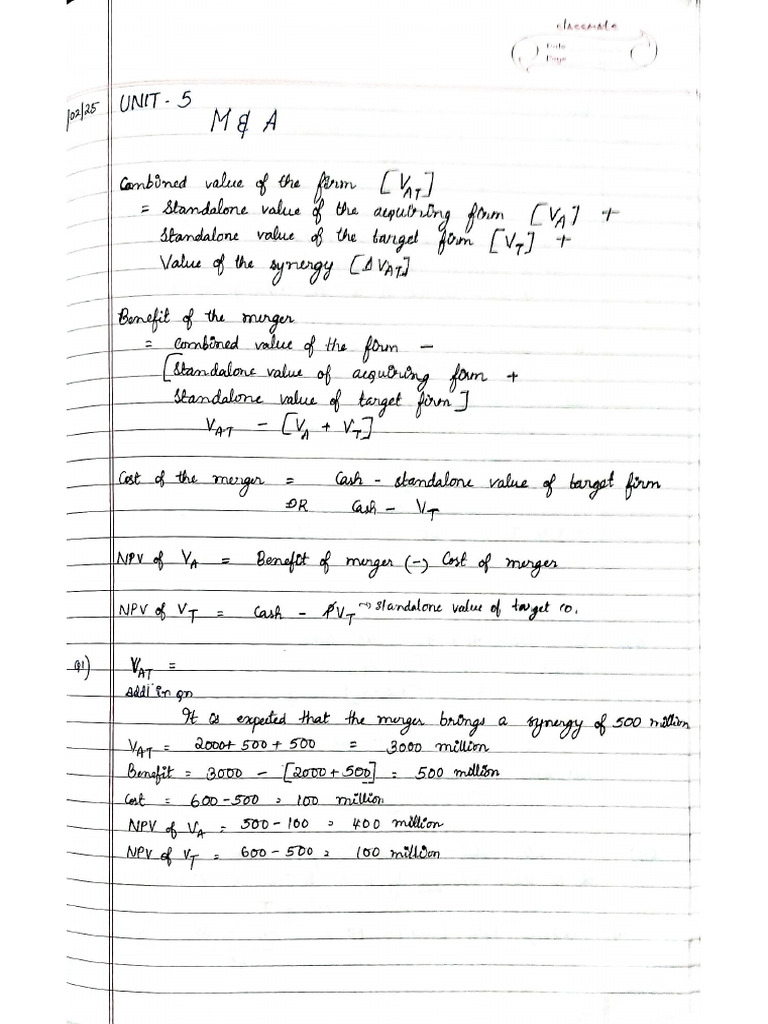 classmate
Date
Page
/02/25
UNIT - 5
M & A
Combined value of the firm [V_AT]
= Standalone value of the acquiring firm [V_A] +
Standalone value of the target firm [V_T] +
Value of the synergy [ΔV_AT]
Benefit of the merger
= combined value of the firm –
[Standalone value of acquiring firm +
Standalone value of target firm]
V_AT – [V_A + V_T]
Cost of the merger = Cash - standalone value of target firm
OR Cash – V_T
NPV of V_A = Benefit of merger (-) Cost of merger
NPV of V_T = Cash – V_T → standalone value of target co.
Q1) V_AT =
Addl in qn
It is expected that the merger brings a synergy of 500 million
V_AT = 2000 + 500 + 500 = 3000 million
Benefit = 3000 – [2000 + 500] = 500 million
Cost = 600 - 500 = 100 million
NPV of V_A = 500 - 100 = 400 million
NPV of V_T = 600 - 500 = 100 million